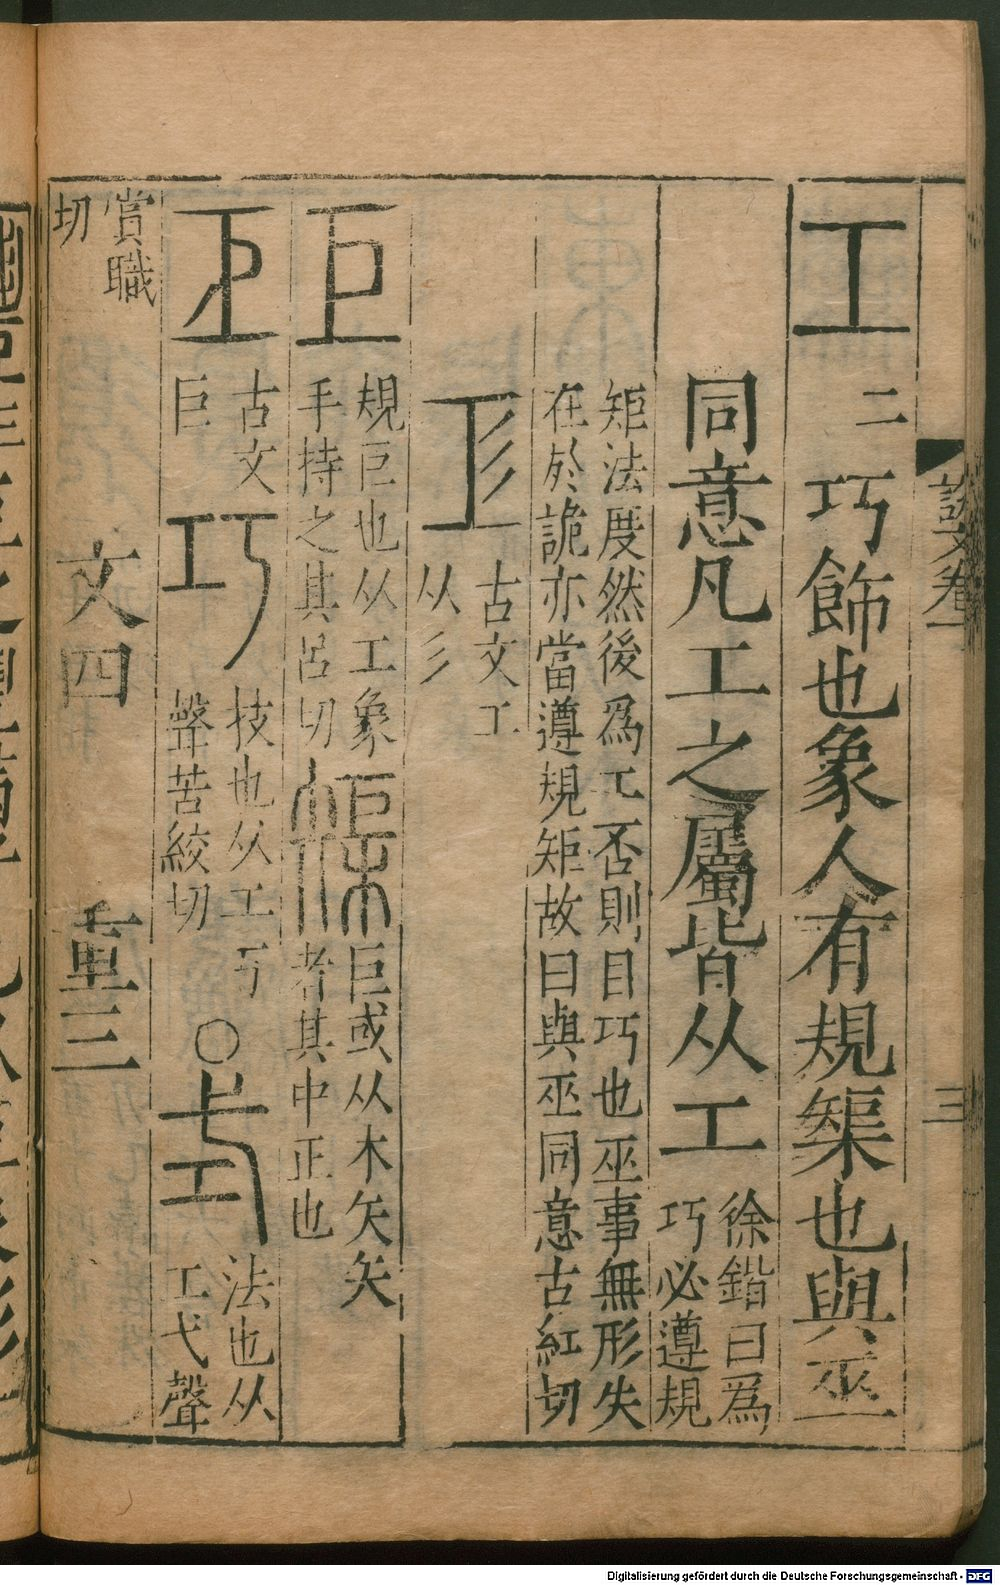 說文卷一
三
工 二 巧飾也象人有規榘也與巫
同意凡工之屬皆从工 徐鍇曰爲
巧必遵規
矩法度然後爲工否則目巧也巫事無形失
在於詭亦當遵規矩故曰與巫同意古紅切
𢒄 古文工
从彡
巨 規巨也从工象
手持之其呂切
榘 巨或从木矢矢
者其中正也
𢀑 古文
巨
巧 技也从工丂
聲苦絞切
○式 法也从
工弋聲
賞職
切
文四 重三
Digitalisierung gefördert durch die Deutsche Forschungsgemeinschaft - DFG